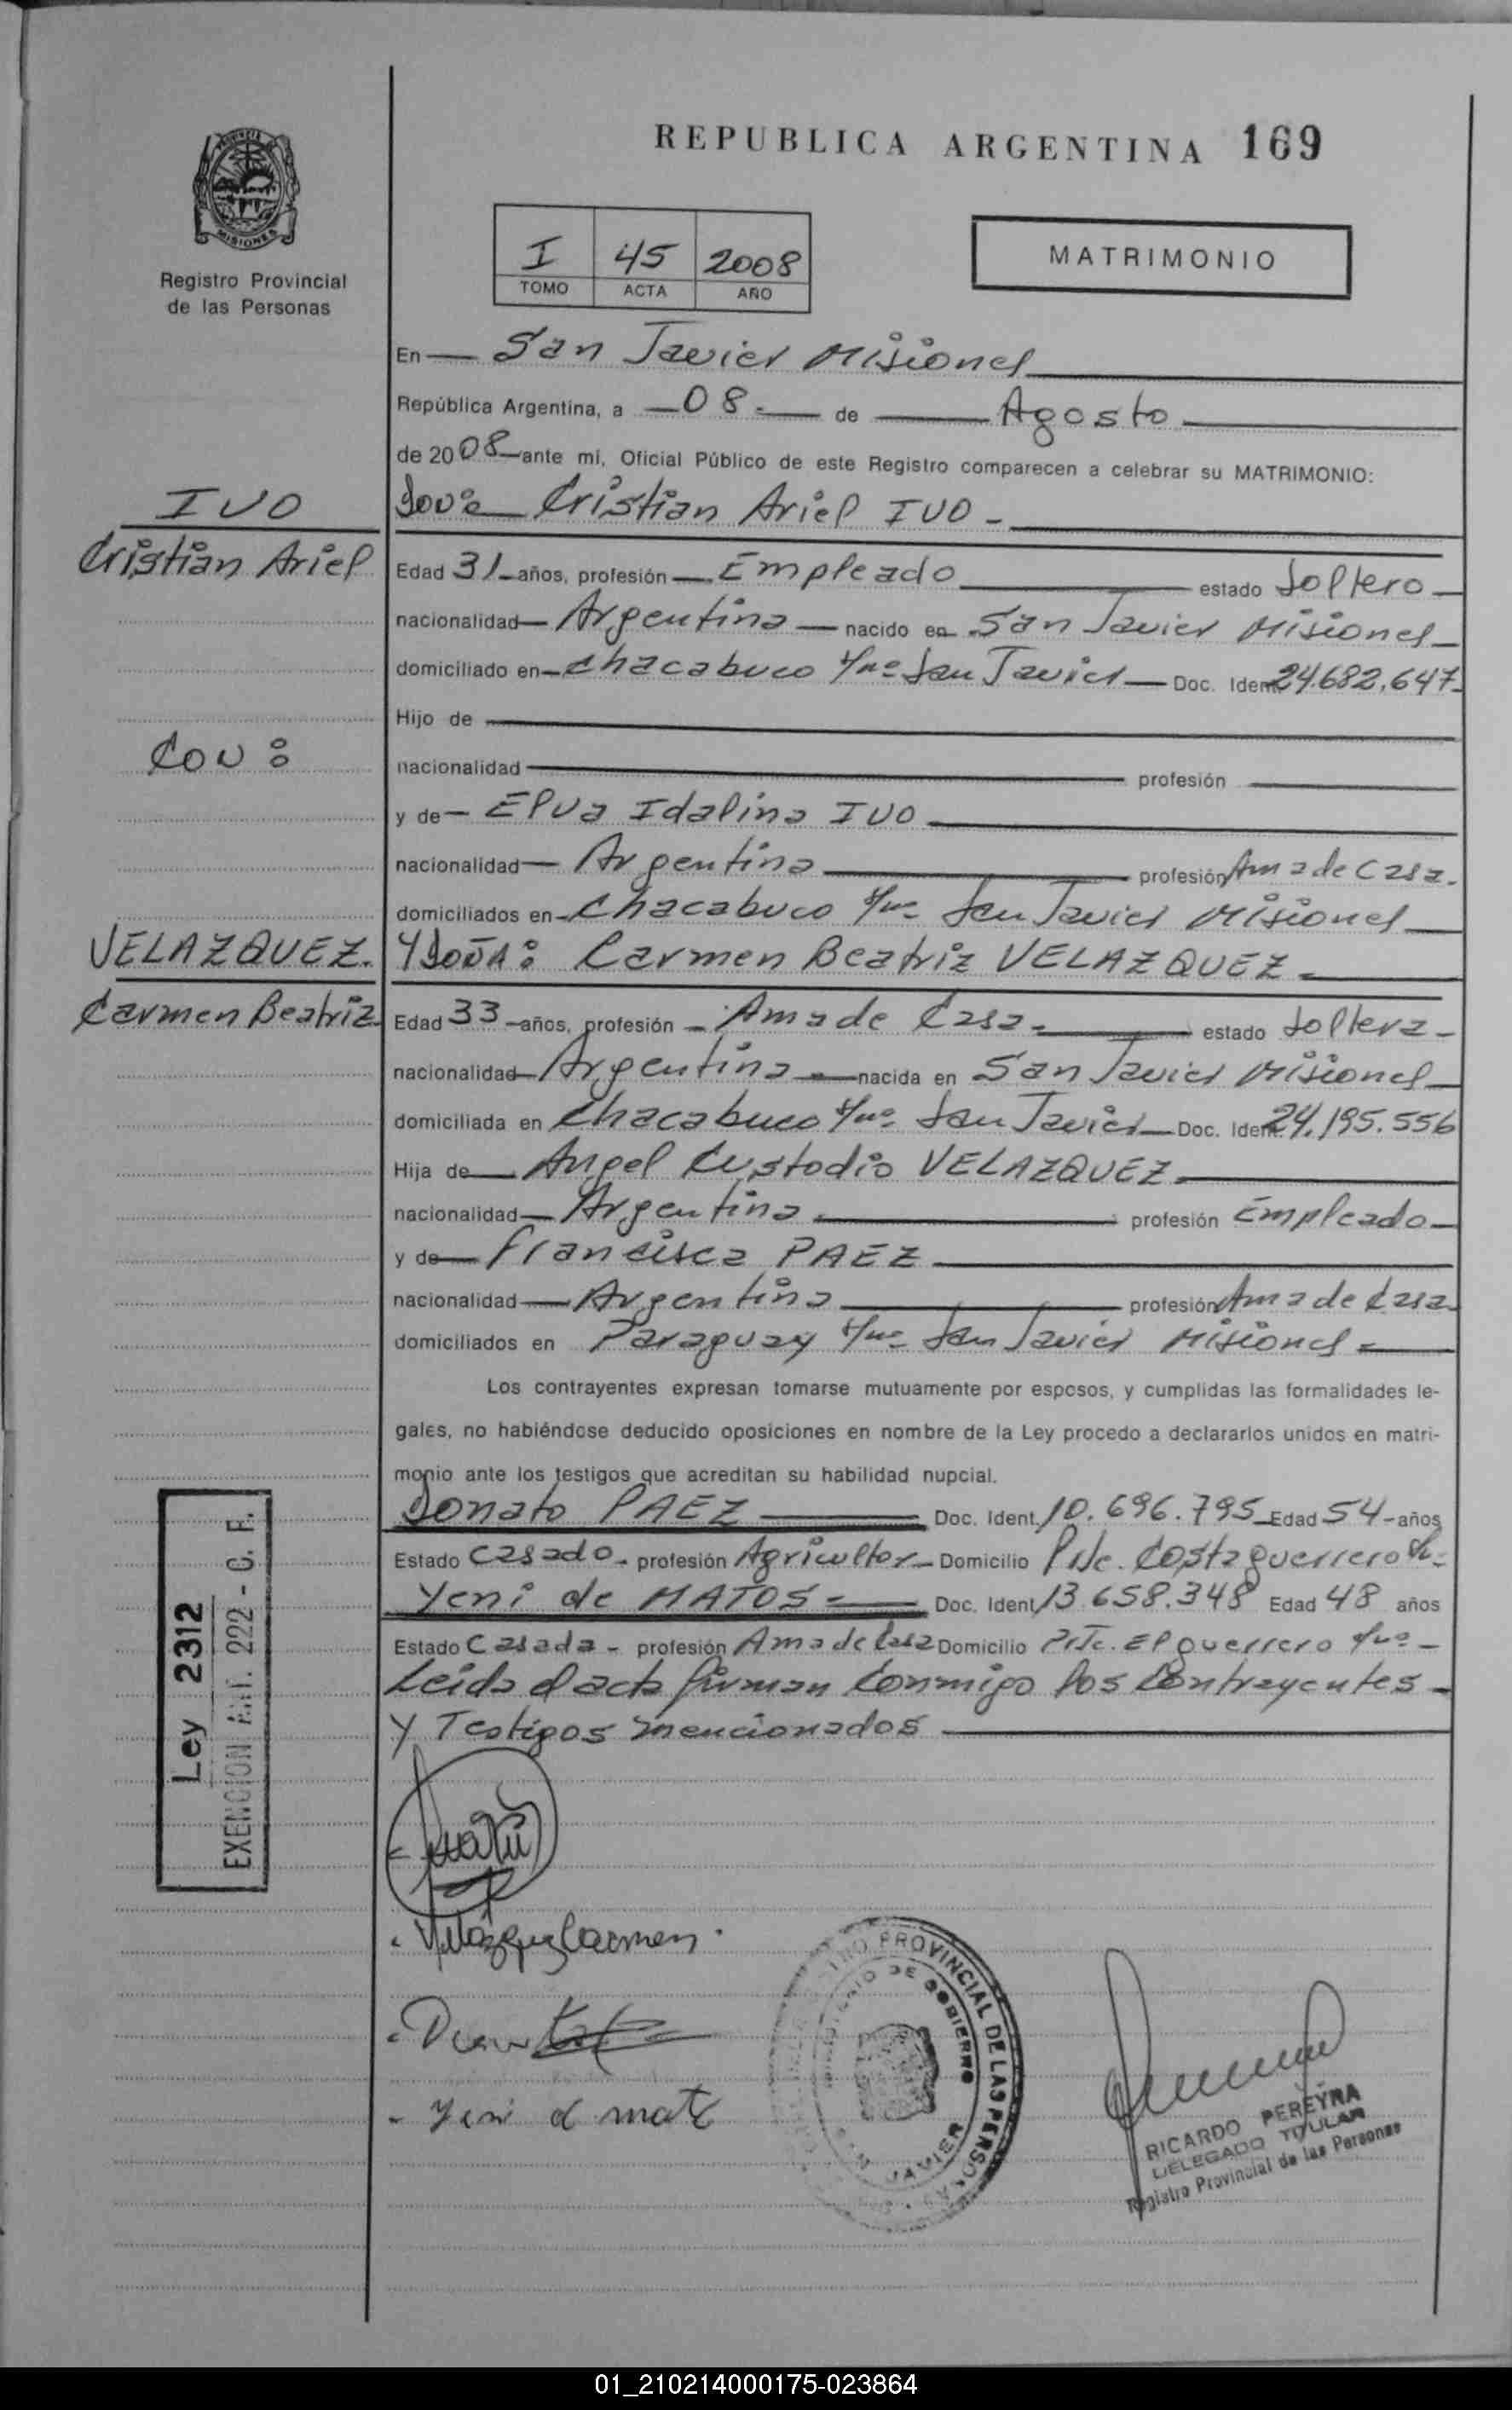 REPUBLICA ARGENTINA 169
PROVINCIA
MISIONES
Registro Provincial
de las Personas
I 45 2008
TOMO ACTA AÑO
MATRIMONIO
En San Javier Misiones
República Argentina, a 08 de Agosto
de 2008 ante mi, Oficial Público de este Registro comparecen a celebrar su MATRIMONIO:
IVO
Cristian Ariel IVO
Cristian Ariel
Edad 31 años, profesión Empleado estado Soltero
nacionalidad Argentina nacido en San Javier Misiones
domiciliado en Chacabuco s/nº San Javier Doc. Ident. 24.682.647
Hijo de
CON:
nacionalidad profesión
y de Elva Idalina IVO
nacionalidad Argentina profesión Ama de Casa
domiciliados en Chacabuco s/nº San Javier Misiones
VELAZQUEZ.
Y DOÑA: Carmen Beatriz VELAZQUEZ
Carmen Beatriz
Edad 33 años, profesión Ama de Casa estado Soltera
nacionalidad Argentina nacida en San Javier Misiones
domiciliada en Chacabuco s/nº San Javier Doc. Ident. 24.195.556
Hija de Angel Custodio VELAZQUEZ
nacionalidad Argentina profesión Empleado
y de Francisca PAEZ
nacionalidad Argentina profesión Ama de Casa
domiciliados en Paraguay s/nº San Javier Misiones
Los contrayentes expresan tomarse mutuamente por esposos, y cumplidas las formalidades le-
gales, no habiéndose deducido oposiciones en nombre de la Ley procedo a declararlos unidos en matri-
monio ante los testigos que acreditan su habilidad nupcial.
Donato PAEZ Doc. Ident. 10.696.795 Edad 54 años
Estado Casado profesión Agricultor Domicilio Pje. Costa guerrero
Yeni de MATOS Doc. Ident. 13.658.348 Edad 48 años
Estado Casada profesión Ama de Casa Domicilio Pje. El guerrero s/nº
Leida el acta firman conmigo los contrayentes
Y Testigos mencionados
Ley 2312
EXENCION Art. 222 - C. F.
Velázquez Carmen
Yeni d mato
REGISTRO PROVINCIAL DE LAS PERSONAS
MINISTERIO DE GOBIERNO
SAN JAVIER
RICARDO PEREYRA
DELEGADO TITULAR
Registro Provincial de las Personas
01_210214000175-023864